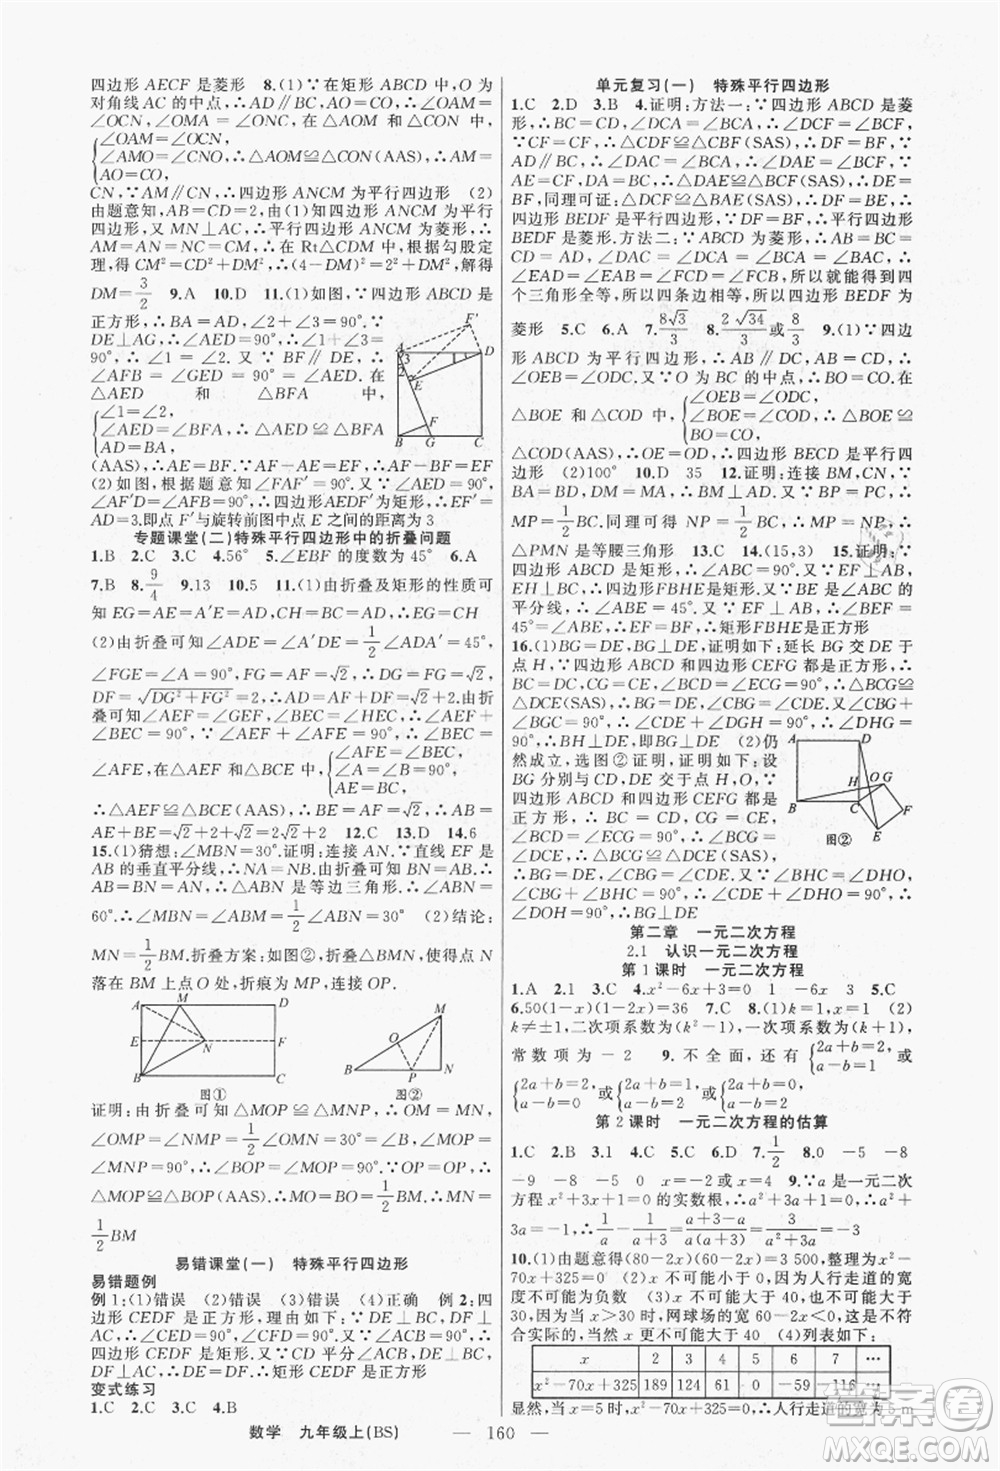 四边形 AECF 是菱形　8.(1)∵在矩形 ABCD 中,O 为
对角线 AC 的中点,∴AD∥BC,AO=CO,∴∠OAM=
∠OCN,∠OMA=∠ONC,在△AOM 和△CON 中,
{∠OAM=∠OCN,
∠AMO=∠CNO,∴△AOM≌△CON(AAS),∴AM=
AO=CO,
CN,∵AM∥CN,∴四边形 ANCM 为平行四边形　(2)
由题意知,AB=CD=2,由(1)知四边形 ANCM 为平行
四边形,又 MN⊥AC,∴平行四边形 ANCM 为菱形,∴
AM=CM=AD-DM=4-DM,在 Rt△CDM 中,根据勾股定
理,得 CM²=CD²+DM²,∴(4-DM)²=2²+DM²,解得
DM=3/2　9.A　10.D　11.(1)如图,∵四边形 ABCD 是
正方形,∴BA=AD,∠2+∠3=90°.∵
DE⊥AG,∴∠AED=90°,∴∠1+∠3=
90°,∴∠1=∠2.又∵BF∥DE,∴
∠AFB=∠GED=90°=∠AED.在
△AED 和 △BFA 中,
{∠1=∠2,
∠AED=∠BFA,∴△AED≌△BFA
AD=BA,
(AAS),∴AE=BF,∴AF-BF=AF-AE=EF
(2)如图,由题意知∠FAF′=90°,DE=AF′=AF,∴
∠AF′D=∠AFB=90°,∴四边形 AEDF′为矩形,∴EF′=
AD=3.即点 F′与旋转前图中点 E 之间的距离为 3
专题课堂(二)特殊平行四边形中的折叠问题
1.B　2.C　3.C　4.56°　5.∠EBF 的度数为 45°　6.A
7.B　8.9/4　9.13　10.5　11.(1)由折叠及矩形的性质可
知 EG=AE=A′E=AD,CH=BC=AD,∴EG=CH
(2)由折叠可知∠ADE=∠A′DE=1/2∠ADA′=45°,
∠FGE=∠A=90°,FG=AF=√2,∴DG=FG=√2,
DF=√DG²+FG²=2,∴AD=AF+DF=√2+2.由折
叠可知∠AEF=∠GEF,∠BEC=∠HEC,∴∠AEF+
∠BEC=90°.∵∠AEF+∠AFE=90°,∴∠BEC=
∠AFE,在△AEF 和△BCE 中,{∠AFE=∠BEC,
∠A=∠B=90°,
AE=BC,
∴△AEF≌△BCE(AAS),∴AF=BE,∴AB=
AE+BE=√2+2+√2=2√2+2　12.C　13.D　14.6
15.(1)猜想:∠MBN=30°.证明:连接 AN.∵直线 EF 是
AB 的垂直平分线,∴NA=NB.由折叠可知,BN=AB,
∴AB=BN=AN,∴△ABN 是等边三角形,∴∠ABN=
60°.∴∠MBN=∠ABM=1/2∠ABN=30°　(2)结论:
MN=1/2BM.折叠方案:如图②,折叠△BMN,使点 N
落在 BM 上点 O 处,折痕为 MP,连接 OP.
A M D
E N F
B C
图①
M
O
B P N
图②
证明:由折叠可知△MOP≌△MNP,∴OM=MN,
∠OMP=∠NMP=1/2∠OMN=30°=∠B,∠MOP=
∠MNP=90°,∴∠BOP=∠MOP=90°.∵OP=OP,∴
△MOP≌△BOP(AAS),∴MO=BO=1/2BM,∴MN=
1/2BM
易错课堂(一)　特殊平行四边形
易错题例
例 1:(1)错误　(2)错误　(3)错误　(4)正确　例 2:四
边形 CEDF 是正方形,理由如下:∵DE⊥BC,DF⊥AC,
∴∠CED=90°,∠CFD=90°.又∵∠ACB=90°,∴四边
形 CEDF 是矩形.又∵CD 平分∠ACB,DE⊥BC,
DF⊥AC,∴DE=DF,∴矩形 CEDF 是正方形
变式练习
1.C　2.C　3.C　4.B
单元复习(一)　特殊平行四边形
1.C　2.D　3.B　4.证明:方法一:∵四边形 ABCD 是菱
形,∴BC=CD,∠DCA=∠BCA,∴∠DCF=∠BCF.
∵CF=CF,∴△CDF≌△CBF(SAS),∴DF=BF.∵
AD∥BC,∴∠DAE=∠BCF.∵AE=CF,DA=BC,
∴△DAE≌△BCF(SAS),∴DE=
BF,同理可证:△DCF≌△BAE(SAS),∴DF=BE,∴
四边形 BEDF 是平行四边形,∵DF=BF,∴平行四边形
BEDF 是菱形.方法二:∵四边形 ABCD 是菱形,∴
∠EAD=∠EAB=∠FCD=∠FCB,所以就能证明四
个三角形全等,所以四条边相等,所以四边形 BEDF 为
菱形　5.C　6.A　7.8√3/3　8.2√34/3或8/3　9.(1)∵四边
形 ABCD 是平行四边形,∴AB∥DC,AB=CD,∴
∠OEB=∠ODC.又∵O 为 BC 的中点,∴BO=CO.在
△BOE 和△COD 中,{∠OEB=∠ODC,
∠BOE=∠COD,∴△BOE≌
BO=CO,
△COD(AAS),∴OE=OD,∴四边形 BECD 是平行四
边形　(2)100°　10.D　11.35　12.证明:连接 BM,CN,
MP=1/2BC.同理可得 NP=1/2BC,∴MP=NP,∴
△PMN 是等腰三角形　13.C　14.(15,3)　15.证明:
16.(1)BG=DE,BG⊥DE,证明如下:延长 BG 交 DE 于
点 H,∵四边形 ABCD 和四边形 CEFG 都是正方形,∴
BC=DC,CG=CE,∠BCG=∠DCE=90°,∴△BCG≌
△DCE(SAS),∴BG=DE,∠CBG=∠CDE.∵∠CBG+
∠BGC=90°,∴∠CDE+∠DGH=90°,∴∠DHG=
90°,∴BH⊥DE,即BG⊥DE　(2)仍
然成立,选图②证明,证明如下:设
BG 分别与 CD,DE 交于点 H,O,∵
四边形 ABCD 和四边形 CEFG 都是
正方形,∴BC=DC,CG=CE,
∠BCD=∠ECG=90°,∴∠BCG=
∠DCE,∴△BCG≌△DCE(SAS),∴BG=DE,
∠CBG=∠CDE.∵∠CBG+∠BHC=
90°,∠BHC=∠DHO,∴∠CDE+∠DHO=90°,∴
∠DOH=90°,∴BG⊥DE
A D
H O G
B C F
E
图②
第二章　一元二次方程
2.1　认识一元二次方程
第 1 课时　一元二次方程
1.A　2.1　3.C　4.x²-6x+3=0　1　-6　3　5.C
6.50(1-x)(1-2x)=36　7.C　8.(1)k=1,x=1　(2)
k≠±1,二次项系数为(k²-1),一次项系数为(k+1),
常数项为-2　9.不全面,还有{2a+b=2,
a-b=2
{2a+b=2,
a-b=1
第 2 课时　一元二次方程的估算
1.C　2.B　3.1　4.C　5.C　6.D　7.1/2　8.0　-5　-8
-9　-8　-5　0　x=-2 或 x=4　9.∵a 是一元二次
方程 x²+3x+1=0 的实数根,∴a²+3a+1=0,∴a²+3
10.(1)由题意得(80-2x)(60-2x)=3 500,整理为 x²-
70x+325=0　(2)x 不可能小于 0,因为人行走道的宽
度不可能为负数　(3)x 不可能大于 40,也不可能大于
30,因为当 x>30 时,网球场的宽 60-2x<0,这是不符
合实际的,当然 x 更不可能大于 40　(4)列表如下:
x　2　3　4　5　6　7　…
x²-70x+325　189　124　61　0　-59　-116　…
显然,当 x=5 时,x²-70x+325=0,∴人行走道的宽为 5 m
数学　九年级上(BS)　— 160 —
答案圈
MXQE.COM